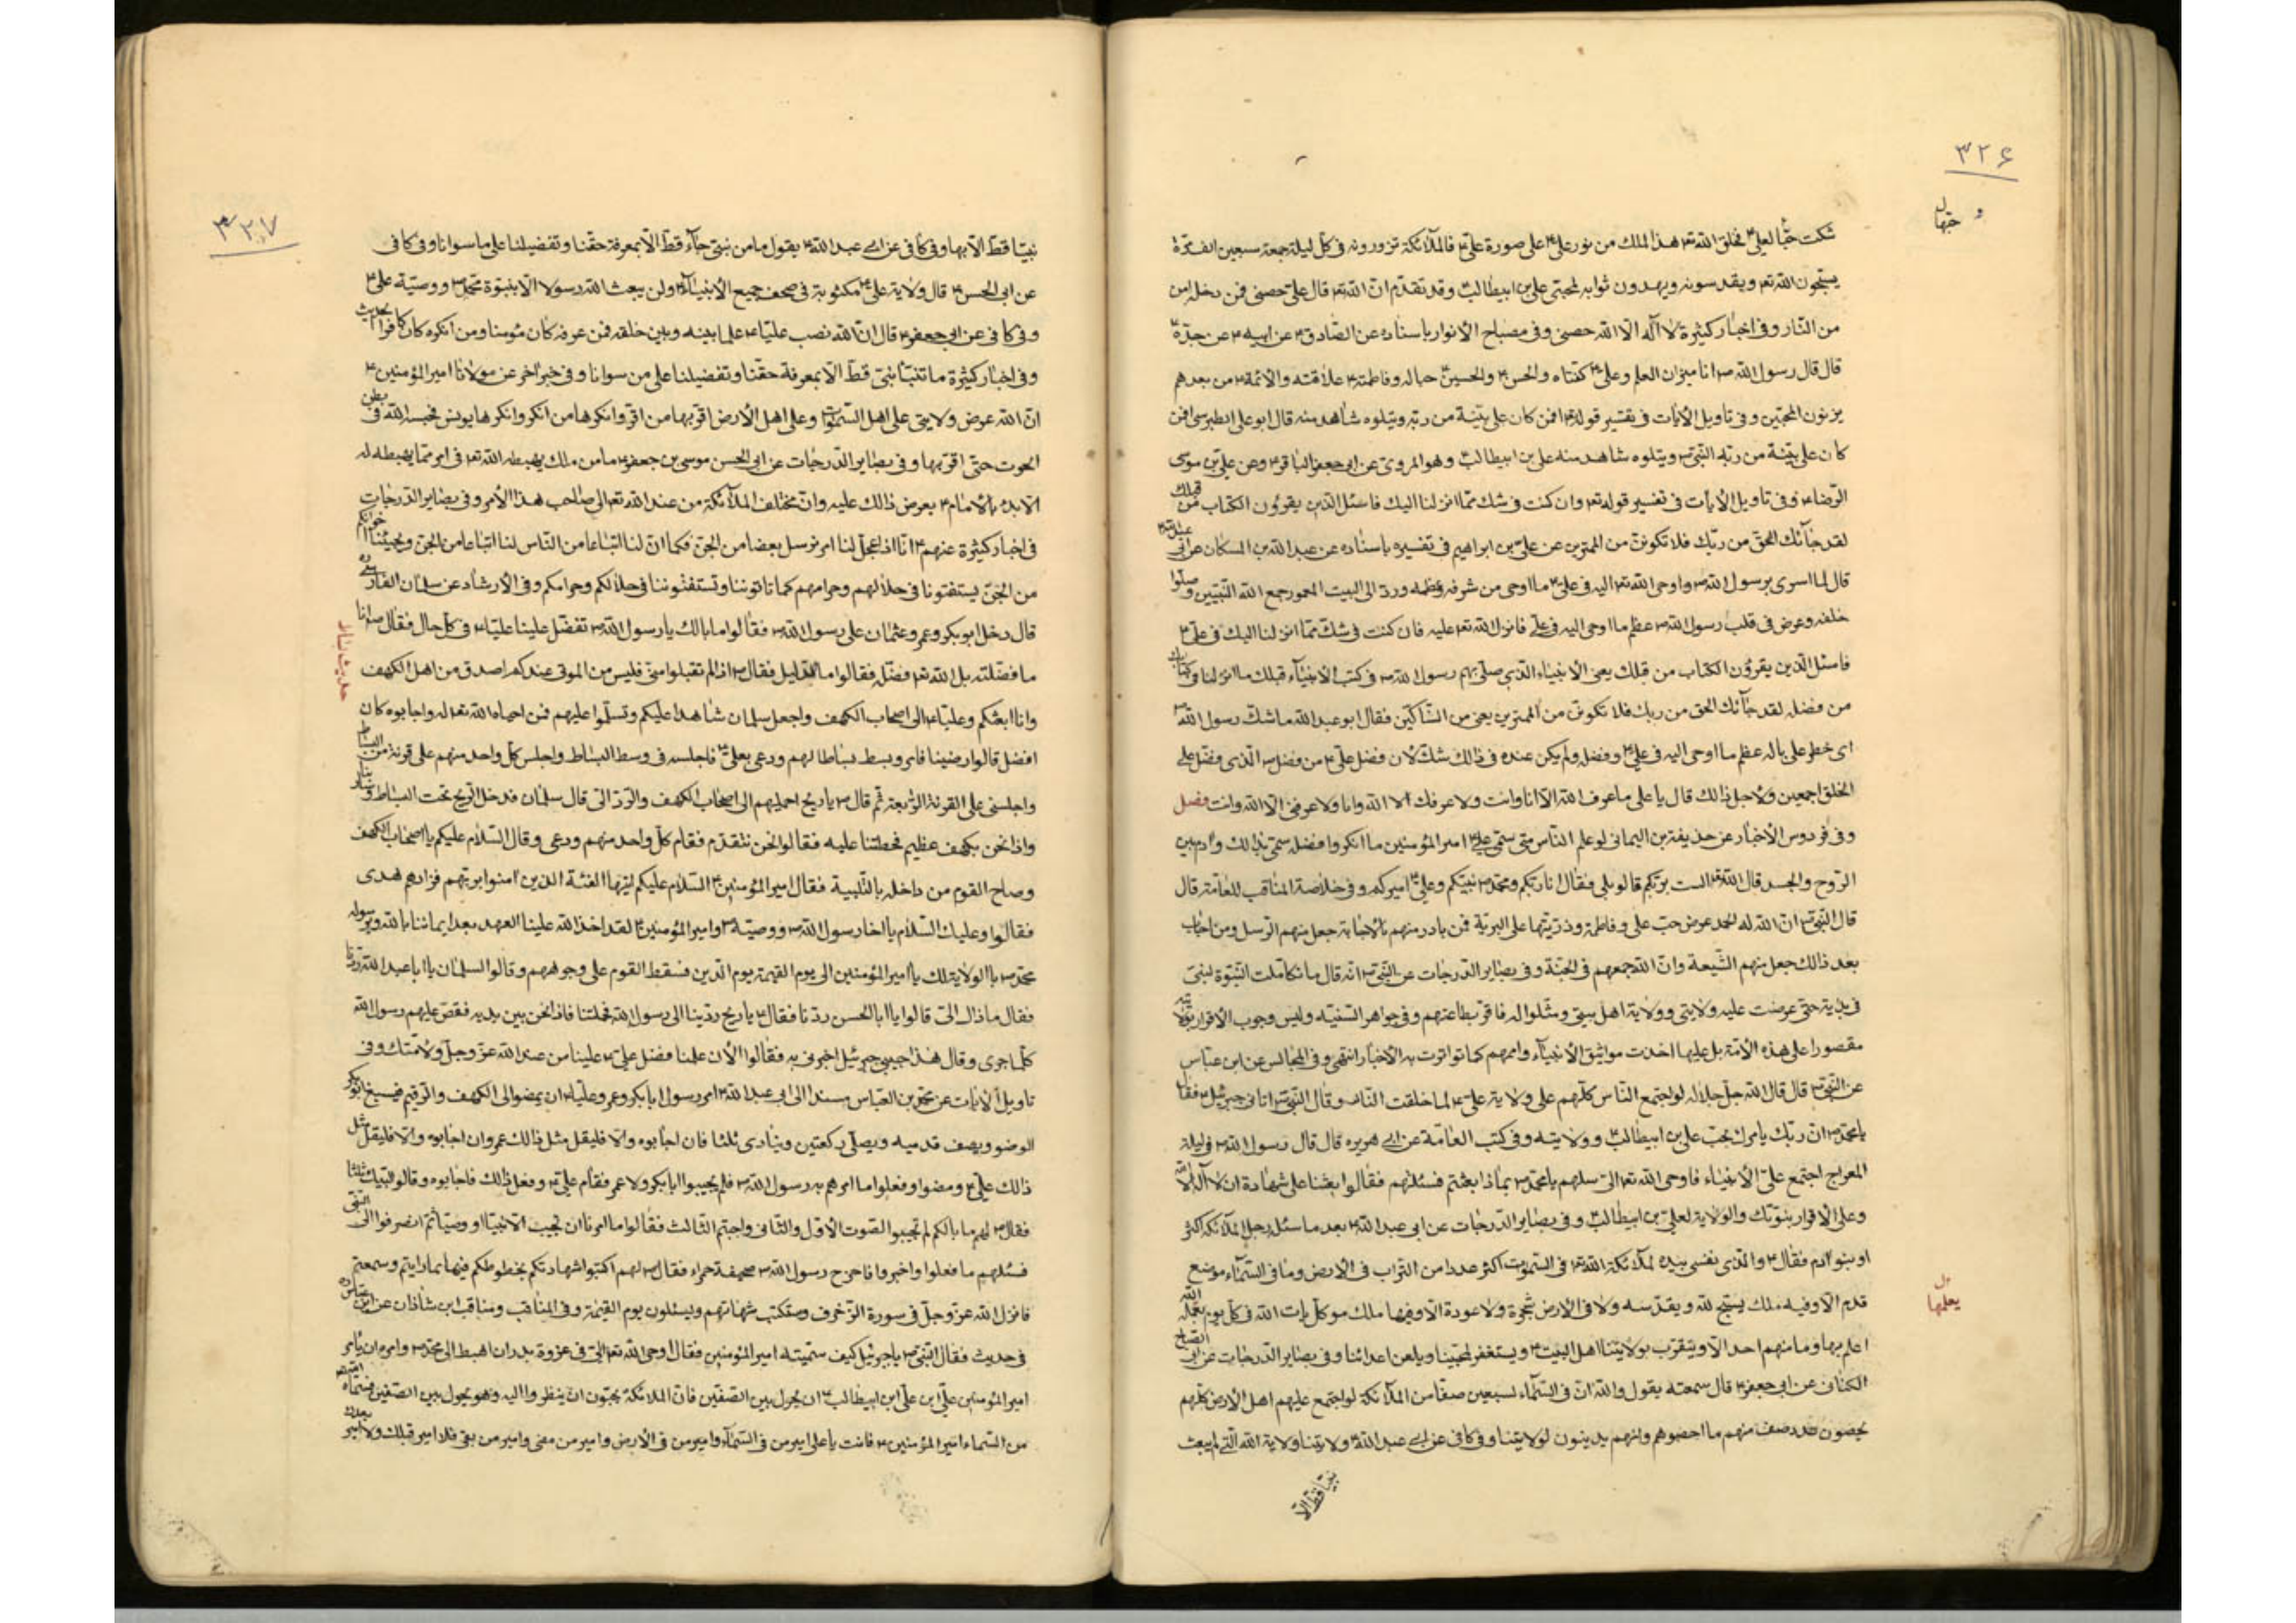 ٣٢۶
شكت حبّا لعلي ع فخلق الله تع هذا الملك من نور علي ع على صورة علي ع فالملائكة تزورونه في كل ليلة جمعة سبعين الف مرّة
يسبّحون الله تع ويقدسونه ويهدون ثوابه لمحبّي علي بن ابيطالب ع وقد تقدّم انّ الله تع قال علي حصني فمن دخله امن
من النّار وفي اخبار كثيرة لا اله الا الله حصني وفي مصباح الأنوار باسناده عن الصّادق ع عن ابيه ع عن جدّه ع
قال قال رسول الله ص انا ميزان العلم وعلي ع كفتاه والحسن ع والحسين ع حباله وفاطمة ع علاقته والأئمة ع من بعدهم
يزنون المحبّين وفي تاويل الأيات في تفسير قوله تع افمن كان على بيّنة من ربّه ويتلوه شاهد منه قال ابو علي الطبرسي افمن
كان على بيّنة من ربّه النّبي ص ويتلوه شاهد منه علي بن ابيطالب ع وهو المروي عن ابي جعفر الباقر ع وعن علي بن موسى
الرّضا ع وفي تاويل الأيات في تفسير قوله تع وان كنت في شك ممّا انزلنا اليك فاسئل الّذين يقرؤن الكتاب من قبلك
لقد جآئك الحق من ربّك فلا تكوننّ من الممترين عن علي بن ابراهيم في تفسيره باسناده عن عبد الله بن السكان عن ابي عبد الله ع
قال لما اسرى برسول الله ص واوحى الله تع اليه في علي ع ما اوحى من شرفه وعظمه وردّ الى البيت المعمور جمع الله النّبيّين وصلّوا
خلفه وعرض في قلب رسول الله ص عظم ما اوحى اليه في علي فانزل الله تع عليه فان كنت في شكّ ممّا انزلنا اليك في علي ع
فاسئل الّذين يقرؤن الكتاب من قبلك يعني الأنبياء الّذي صلّى بهم رسول الله ص في كتب الأنبيآء قبلك ما انزلنا في كتابك
من فضله لقد جآئك الحق من ربك فلا تكوننّ من الممترين يعني من الشّاكّين فقال ابو عبد الله ما شكّ رسول الله ص
اي خطر على باله عظم ما اوحى اليه في علي ع وفضله ولم يكن عنده في ذالك شكّ لأن فضل علي ع من فضل ص الذي فضل على
الخلق اجمعين ولأجل ذالك قال يا علي ما عرف الله الّا انا وانت ولا عرفك الا الله وانا ولا عرفني الّا الله وانت فصل
وفي فردوس الأخبار عن حذيفة بن اليماني لو علم النّاس متى سمّي علي ع امير المؤمنين ما انكروا فضله سمّي بذالك وآدم بين
الرّوح والجسد قال الله تع الست بربّكم قالو بلى فقال انا ربّكم ومحمد ص نبيّكم وعلي ع اميركم وفي خلاصة المناقب للعامّة قال
قال النّبي ص انّ الله له الحمد عرض حبّ علي وفاطمة وذرّيّتها على البريّة فمن بادر منهم بالأجابة جعل منهم الرّسل ومن اجاب
بعد ذالك جعل منهم الشّيعة وانّ الله جمعهم في الجنّة وفي بصاير الدّرجات عن النّبي ص انّه قال ما تكاملت النّبوّة لنبيّ
حتى عرضت عليه ولايتي وولاية اهل بيتي ومثّلوا له فاقرّ بطاعتهم وفي جواهر السّنيّه وليس وجوب الأقرار
مقصورا على هذه الأمّة بل عليها اخذت مواثيق الأنبيآء واممهم كما تواترت به الأخبار انتهى وفي المجالس عن ابن عبّاس
عن النّبي ص قال قال الله جلّ جلاله لو اجتمع النّاس كلّهم على ولاية علي ع لما خلقت النّار وقال النّبي ص اتاني جبرئيل ع فقال
يا محمّد ص انّ ربّك يامرك بحبّ علي بن ابيطالب ع وولايته وفي كتب العامّة عن ابي هريره قال قال رسول الله ص في ليلة
المعراج اجتمع علي الأنبياء فاوحى الله تع اليّ سلهم يا محمّد ص بماذا بعثتم فسئلتهم فقالوا بعثنا على شهادة ان لا اله الا الله
وعلى الأقرار بنبوّتك والولاية لعلي بن ابيطالب ع وفي بصاير الدّرجات عن ابي عبد الله ع بعد ما سئل رجل الملائكة اكثر
او بنو آدم فقال ع والّذي نفسي بيده لملائكة الله تع في السّموت اكثر عددا من التراب في الأرض وما في السّمآء موضع
قدم الّا وفيه ملك يسبّح لله ويقدّسه ولا في الأرض شجرة ولا عودة الّا وفيها ملك موكّل يات الله في كلّ يوم بعمله الله
اعلم بها وما منهم احد الّا ويتقرّب بولايتنا اهل البيت ع ويستغفر لمحبّينا ويلعن اعدائنا وفي بصاير الدّرجات عن ابي الصّباح
الكناني عن ابي جعفر ع قال سمعته يقول والله انّ في السّمآء لسبعين صفّا من الملآئكة لو اجتمع عليهم اهل الأرض كلّهم
يحصون عدد صف منهم ما احصوهم وانهم يدينون لولايتنا وفي كافي عن ابي عبد الله ع ولايتنا ولاية الله الّتي لم يبعث
نبيّا قط الّا
يعلمها
٣٢٧
نبيّا قطّ الّا بها وفي كافي عن ابي عبد الله ع يقول ما من نبيّ جآء قطّ الّا بمعرفة حقّنا وتفضيلنا على ما سوانا وفي كافي
عن ابي الحسن ع قال ولاية علي ع مكتوبة في صحف جميع الأنبيآء ولن يبعث الله رسولا الّا بنبوّة محمّد ص ووصيّة علي ع
وفي كافي عن ابي جعفر ع قال انّ الله نصب عليّا ع علما بينه وبين خلقه فمن عرفه كان مؤمنا ومن انكره كان كافرا الحديث
وفي اخبار كثيرة ما تنبّأ نبيّ قطّ الّا بمعرفة حقّنا وتفضيلنا على من سوانا وفي خبر آخر عن مولانا امير المؤمنين ع
انّ الله عرض ولايتي على اهل السّموات وعلى اهل الأرض اقرّ بها من اقرّ وانكرها من انكر وانكرها يونس فحبسه الله في بطن
الحوت حتّى اقرّ بها وفي بصاير الدّرجات عن ابي الحسن موسى بن جعفر ع ما من ملك يهبطه الله تع في امر ممّا يهبطه له
الّا بدء بالأمام ع يعرض ذالك عليه وانّ مختلف الملآئكة من عند الله تع الى صاحب هذا الأمر وفي بصاير الدّرجات
في اخبار كثيرة عنهم ع انّا اذا عجّل لنا امر نرسل بعضا من الجنّ فكما انّ لنا اتباعا من النّاس لنا اتباعا من الجنّ ويجيئنا اخوانكم
من الجنّ يستفتونا في حلالهم وحرامهم كما تاتوننا وتستفتوننا في حلالكم وحرامكم وفي الأرشاد عن سلمان الفارسي ره
قال دخل ابو بكر وعمر وعثمان على رسول الله ص فقالوا ما بالك يا رسول الله ص تفضّل علينا عليّا ع في كلّ حال فقال ص انا
ما فضّلته بل الله تع فضّله فقالوا ما الدّليل فقال ص اذا لم تقبلوا منّي فليس من الموتى عندكم اصدق من اهل الكهف
وانا ابعثكم وعليّا ع الى اصحاب الكهف واجعل سلمان شاهدا عليكم وتسلّموا عليهم فمن احياه الله تع له واجابوه كان
افضل قالوا رضينا فامر وبسط بساطا لهم ودعى بعلي ع فاجلسه في وسط البساط واجلس كلّ واحد منهم على قرنة من البساط
واجلسني على القرنة الرّابعة ثمّ قال ص يا ريح احمليهم الى اصحاب الكهف والرّد الي قال سلمان فدخل الرّيح تحت البساط وسار بنا
واذا نحن بكهف عظيم فحطّتنا عليه فقالوا نحن نتقدّم فقام كلّ واحد منهم ودعى وقال السّلام عليكم يا اصحاب الكهف
وصاح القوم من داخله بالتّلبية فقال امير المؤمنين ع السّلام عليكم ايّها الفئة الذين آمنوا بربّهم فزادهم هدى
فقالوا وعليك السّلام يا اخا رسول الله ص ووصيّه وامير المؤمنين ع لقد اخذ الله علينا العهد بعد ايماننا بالله وبرسوله
محمّد ص بالولاية لك يا امير المؤمنين الى يوم القيمة يوم الدّين فسقط القوم على وجوههم وقالو السلمان يا ابا عبد الله ردّنا
فقال ما ذاك اليّ قالوا يا ابا الحسن ردّنا فقال ع يا ريح ردّينا الى رسول الله فحملتنا فاذا نحن بين يديه فقصّ عليهم رسول الله
كلّما جرى وقال هذا حبيبي جبرئيل اخبرني به فقالوا الأن علمنا فضل علي ع علينا من عند الله عزّ وجلّ ولأمّتك وفي
تاويل الأيات عن محمّد بن العبّاس مسندا الى ابي عبد الله ع امر رسول ابا بكر وعمر وعليّا ع ان يمضوا الى الكهف والرّقيم فيسبغ ابو بكر
الوضو ويصف قدميه ويصلّي ركعتين وينادى ثلثا فان اجابوه والا فليقل مثل ذالك عمر وان اجابوه والا فليقل مثل
ذالك علي ع ومضوا وفعلوا ما امرهم به رسول الله ص فلم يجيبوا ابا بكر ولا عمر فقام علي ع وفعل ذالك فاجابوه وقالو لبّيك ثلثا
فقال ع لهم ما بالكم لم تجيبوا الصّوت الأوّل والثّاني واجبتم الثّالث فقالوا ما امرنا ان نجيب الّا نبيّا او وصيّا ثمّ انصرفوا الى النّبي
فسئلهم ما فعلوا واخبروا فاخرج رسول الله ص صحيفة حمراء فقال ص لهم اكتبوا شهادتكم بخطوطكم فيها بما رايتم وسمعتم
فانزل الله عزّ وجلّ في سورة الزّخرف وستكتب شهاتهم ويسئلون يوم القيمة وفي المناقب ومناقب ابن شاذان عن ابن عبّاس
في حديث فقال النّبي ص يا جبرئيل كيف سمّيته امير المؤمنين فقال اوحى الله تع اليّ في غزوة بدر ان اهبط الى محمّد ص وامره ان يامر
امير المؤمنين علي بن ابيطالب ع ان يجول بين الصّفين فانّ الملائكة يحبّون ان ينظروا اليه وهو يجول بين الصّفين فسمّاه الله
من السّماء امير المؤمنين ع فانت يا علي امير من في السّمآء وامير من في الأرض وامير من مضى وامير من بقي فلا امير قبلك ولا امير بعدك
حديث بساط